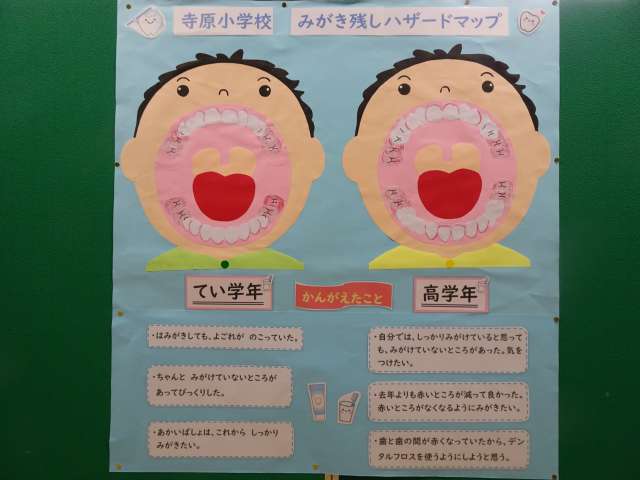 寺原小学校 みがき残しハザードマップ
てい学年
かんがえたこと
高学年
・はみがきしても、よごれが のこっていた。
・ちゃんと みがけていないところが
あってびっくりした。
・あかいばしょは、これから しっかり
みがきたい。
・自分では、しっかりみがけていると思って
も、みがけていないところがあった。気を
つけたい。
・去年よりも赤いところが減って良かった。
赤いところがなくなるようにみがきたい。
・歯と歯の間が赤くなっていたから、デン
タルフロスを使うようにしようと思う。